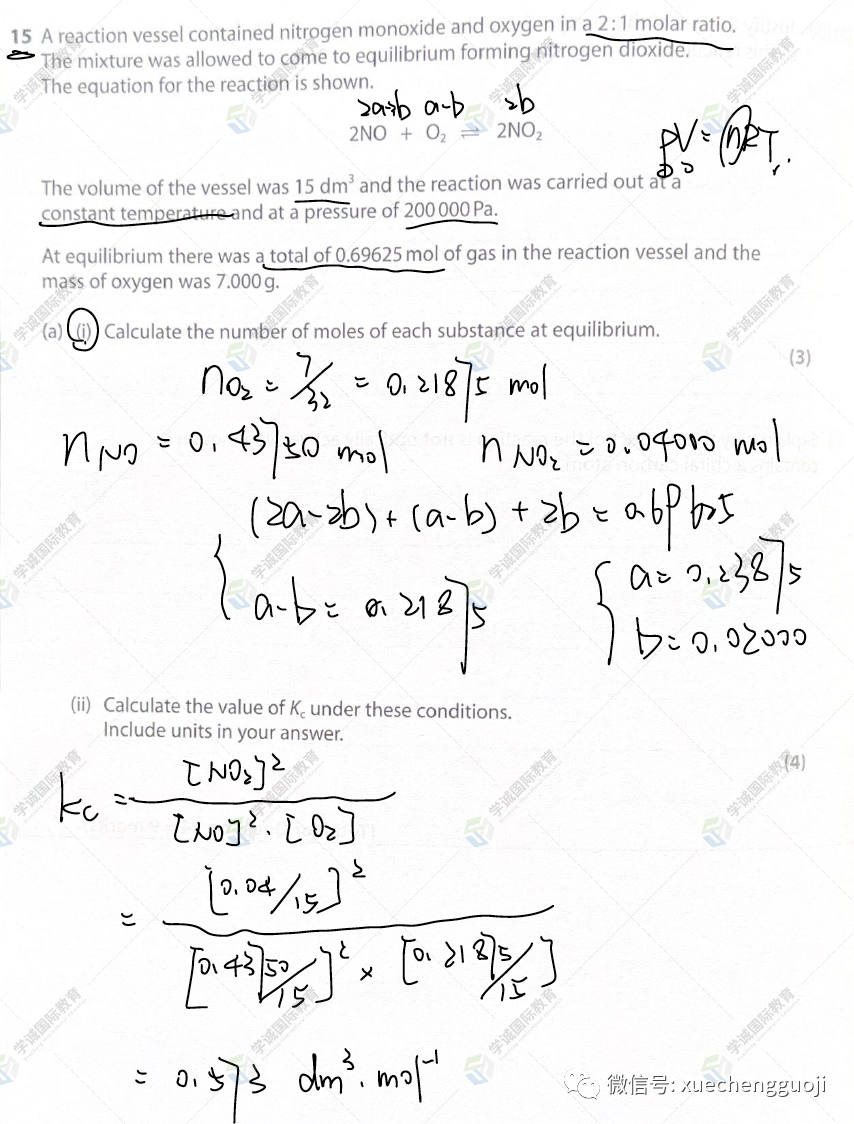 15 A reaction vessel contained nitrogen monoxide and oxygen in a 2:1 molar ratio.
The mixture was allowed to come to equilibrium forming nitrogen dioxide.
The equation for the reaction is shown.
2a-2b a-b 2b
2NO + O₂ ⇌ 2NO₂
PV = nRT
The volume of the vessel was 15 dm³ and the reaction was carried out at a
constant temperature and at a pressure of 200 000 Pa.
At equilibrium there was a total of 0.69625 mol of gas in the reaction vessel and the
mass of oxygen was 7.000 g.
(a) (i) Calculate the number of moles of each substance at equilibrium.
(3)
nO₂ = 7/32 = 0.21875 mol
nNO = 0.43750 mol nNO₂ = 0.04000 mol
(2a-2b) + (a-b) + 2b = 0.69625
a-b = 0.21875
a = 0.23875
b = 0.02000
(ii) Calculate the value of Kc under these conditions.
Include units in your answer.
(4)
Kc = [NO₂]² / [NO]² · [O₂]
= [0.04/15]² / [0.43750/15]² × [0.21875/15]
= 0.573 dm³·mol⁻¹
学诚国际教育
微信号: xuechengguoji